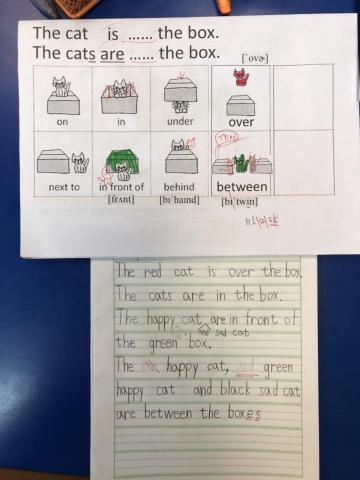 The cat is ...... the box.
The cats are ...... the box.
[ˈovɚ]
on in under over
next to in front of behind between
[frʌnt] [bɪˈhaɪnd] [bɪˈtwin]
The red cat is over the box
The cats are in the box.
The happy cat, are in front of
and sad cat
the green box.
The happy cat, green
happy cat and black sad cat
are between the boxes